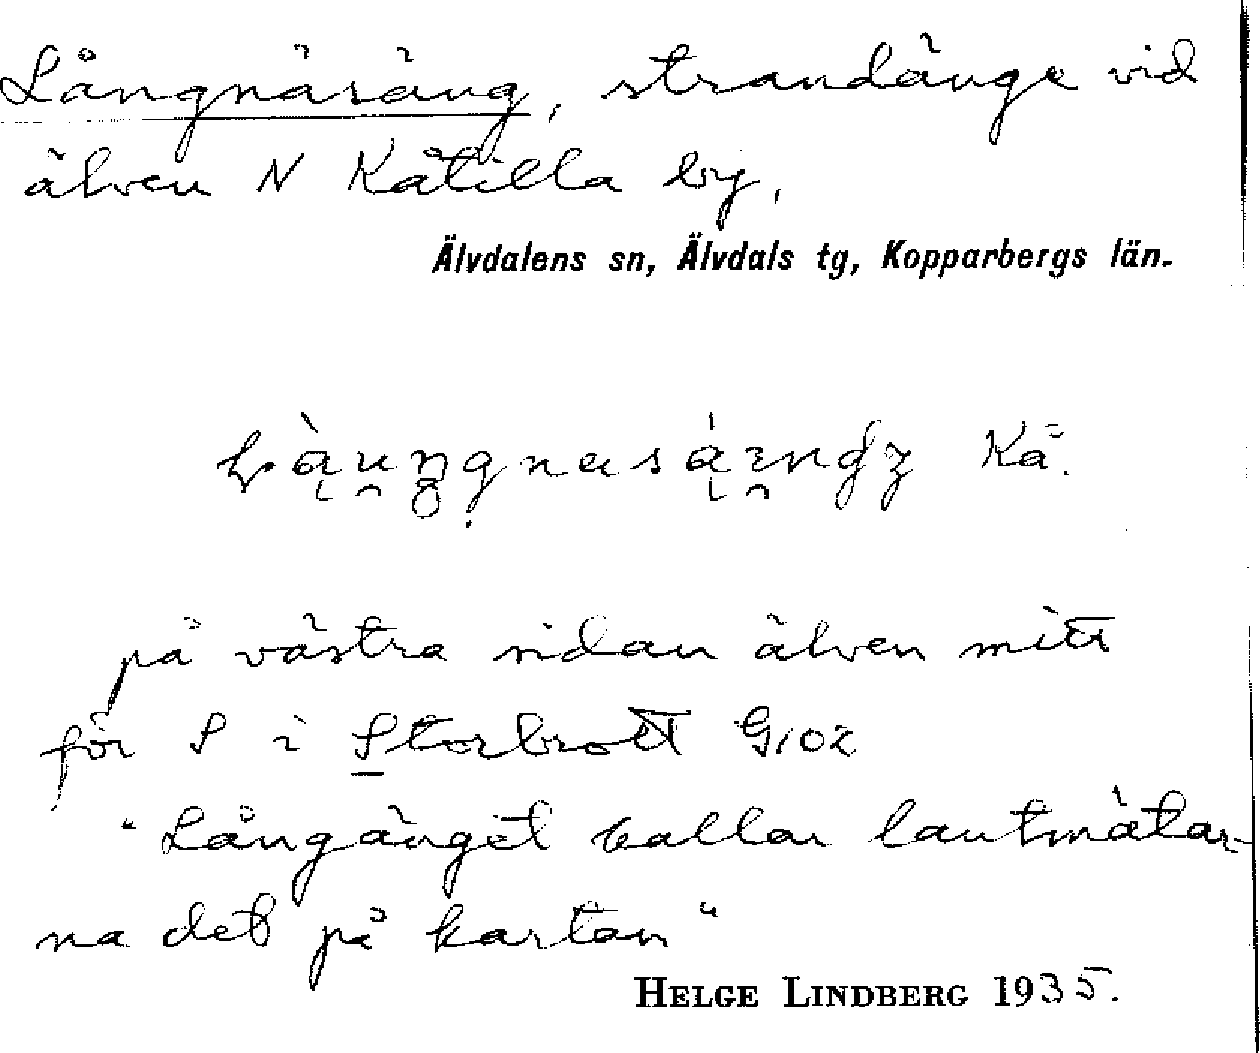 Långnäsäng, strandänge vid
älven N Kåtilla by,
Älvdalens sn, Älvdals tg, Kopparbergs län.
Kå.
på västra sidan älven mitt
för S i Storbrott G102
"Långänget kallar lantmätar-
na det på kartan"
HELGE LINDBERG 1935.